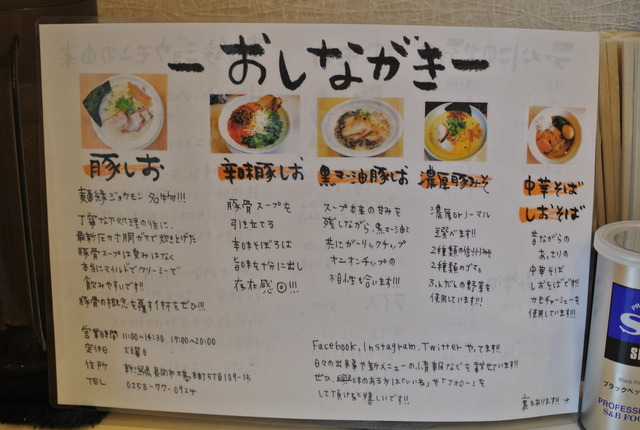 ーおしながきー
豚しお
麺縁ジョウモン名物!!!
丁寧な下処理の後に、
最新圧力寸胴ガマで炊き上げた
豚骨スープは臭みはなく
本当にマイルドでクリーミーで
飲みやすいです!!
豚骨の概念を覆す1杯をぜひ!!!
辛味豚しお
豚骨スープを
引き立てる
辛味そぼろは
旨味を十分に出し
存在感◎!!!
黒マー油豚しお
スープ本来の甘みを
残しながら、黒マー油と
共にガーリックチップ
オニオンチップの
相性も合います!!!
濃厚豚みそ
濃厚orノーマル
選べます!!
2種類の
2種類のゴマも
ふんだんの野菜を
使用しています!!!
中華そば
しおそば
昔ながらの
あっさりの
中華そば
しおそばです!!
使用しています!!!
営業時間 11:00~14:30 17:00~20:00
定休日 火曜日
住所 新潟県長岡市大島本町5丁目109-15
TEL 0258-77-0924
Facebook、Instagram、Twitterやってます!!
日々の出来事や新メニューの小情報などを載せています!!
ぜひ、興味のある方は「いいね」や「フォロー」を
して頂けると嬉しいです!!
裏もあります!! →
ブラックペッ
PROFESSIONA
S&B FOO